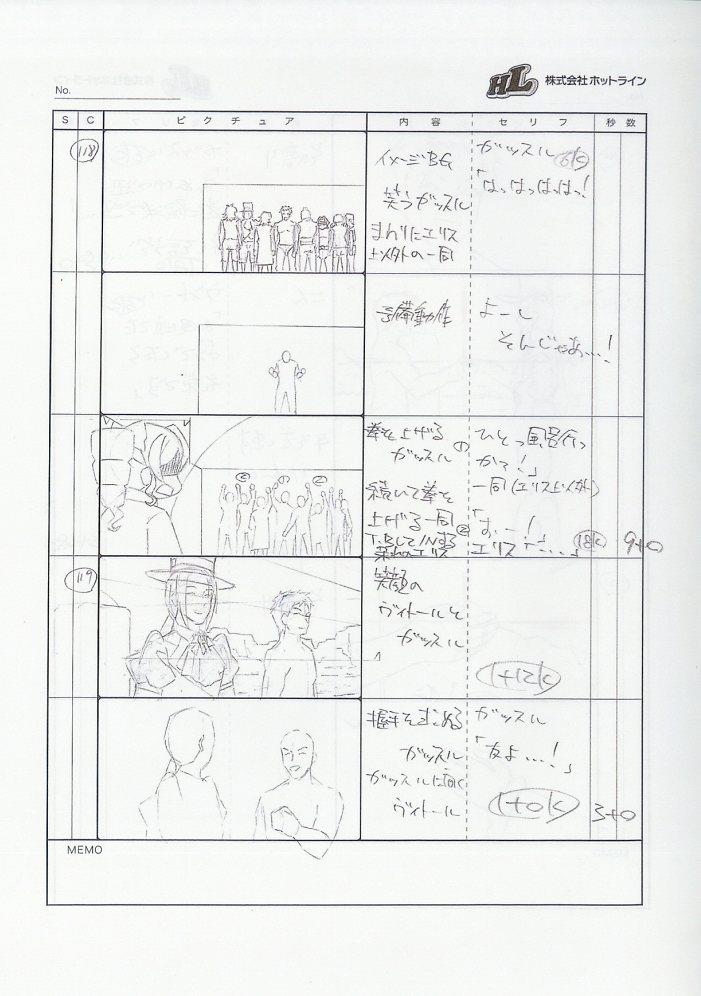 HL 株式会社 ホットライン
No.
S C ピクチュア 内容 セリフ 秒数
118
イメージBG
笑うガッスル
まわりにエリス
以外の一同
ガッスル
「はっはっはっはっ!
6K
予備動作
よーし
そんじゃぁ…!
拳を上げる
ガッスル
続いて拳を
上げる一同
T.BしてINする
呆れのエリス
ひとつ風呂行っ
か?!」
一同(エリス以外)
「おー!」
エリス「……」
18K
9+0
119
笑顔の
ヴィトールと
ガッスル
1+12K
握手を求める
ガッスル
ガッスルに向く
ヴィトール
ガッスル
「友よ…!」
1+0K
3+0
MEMO